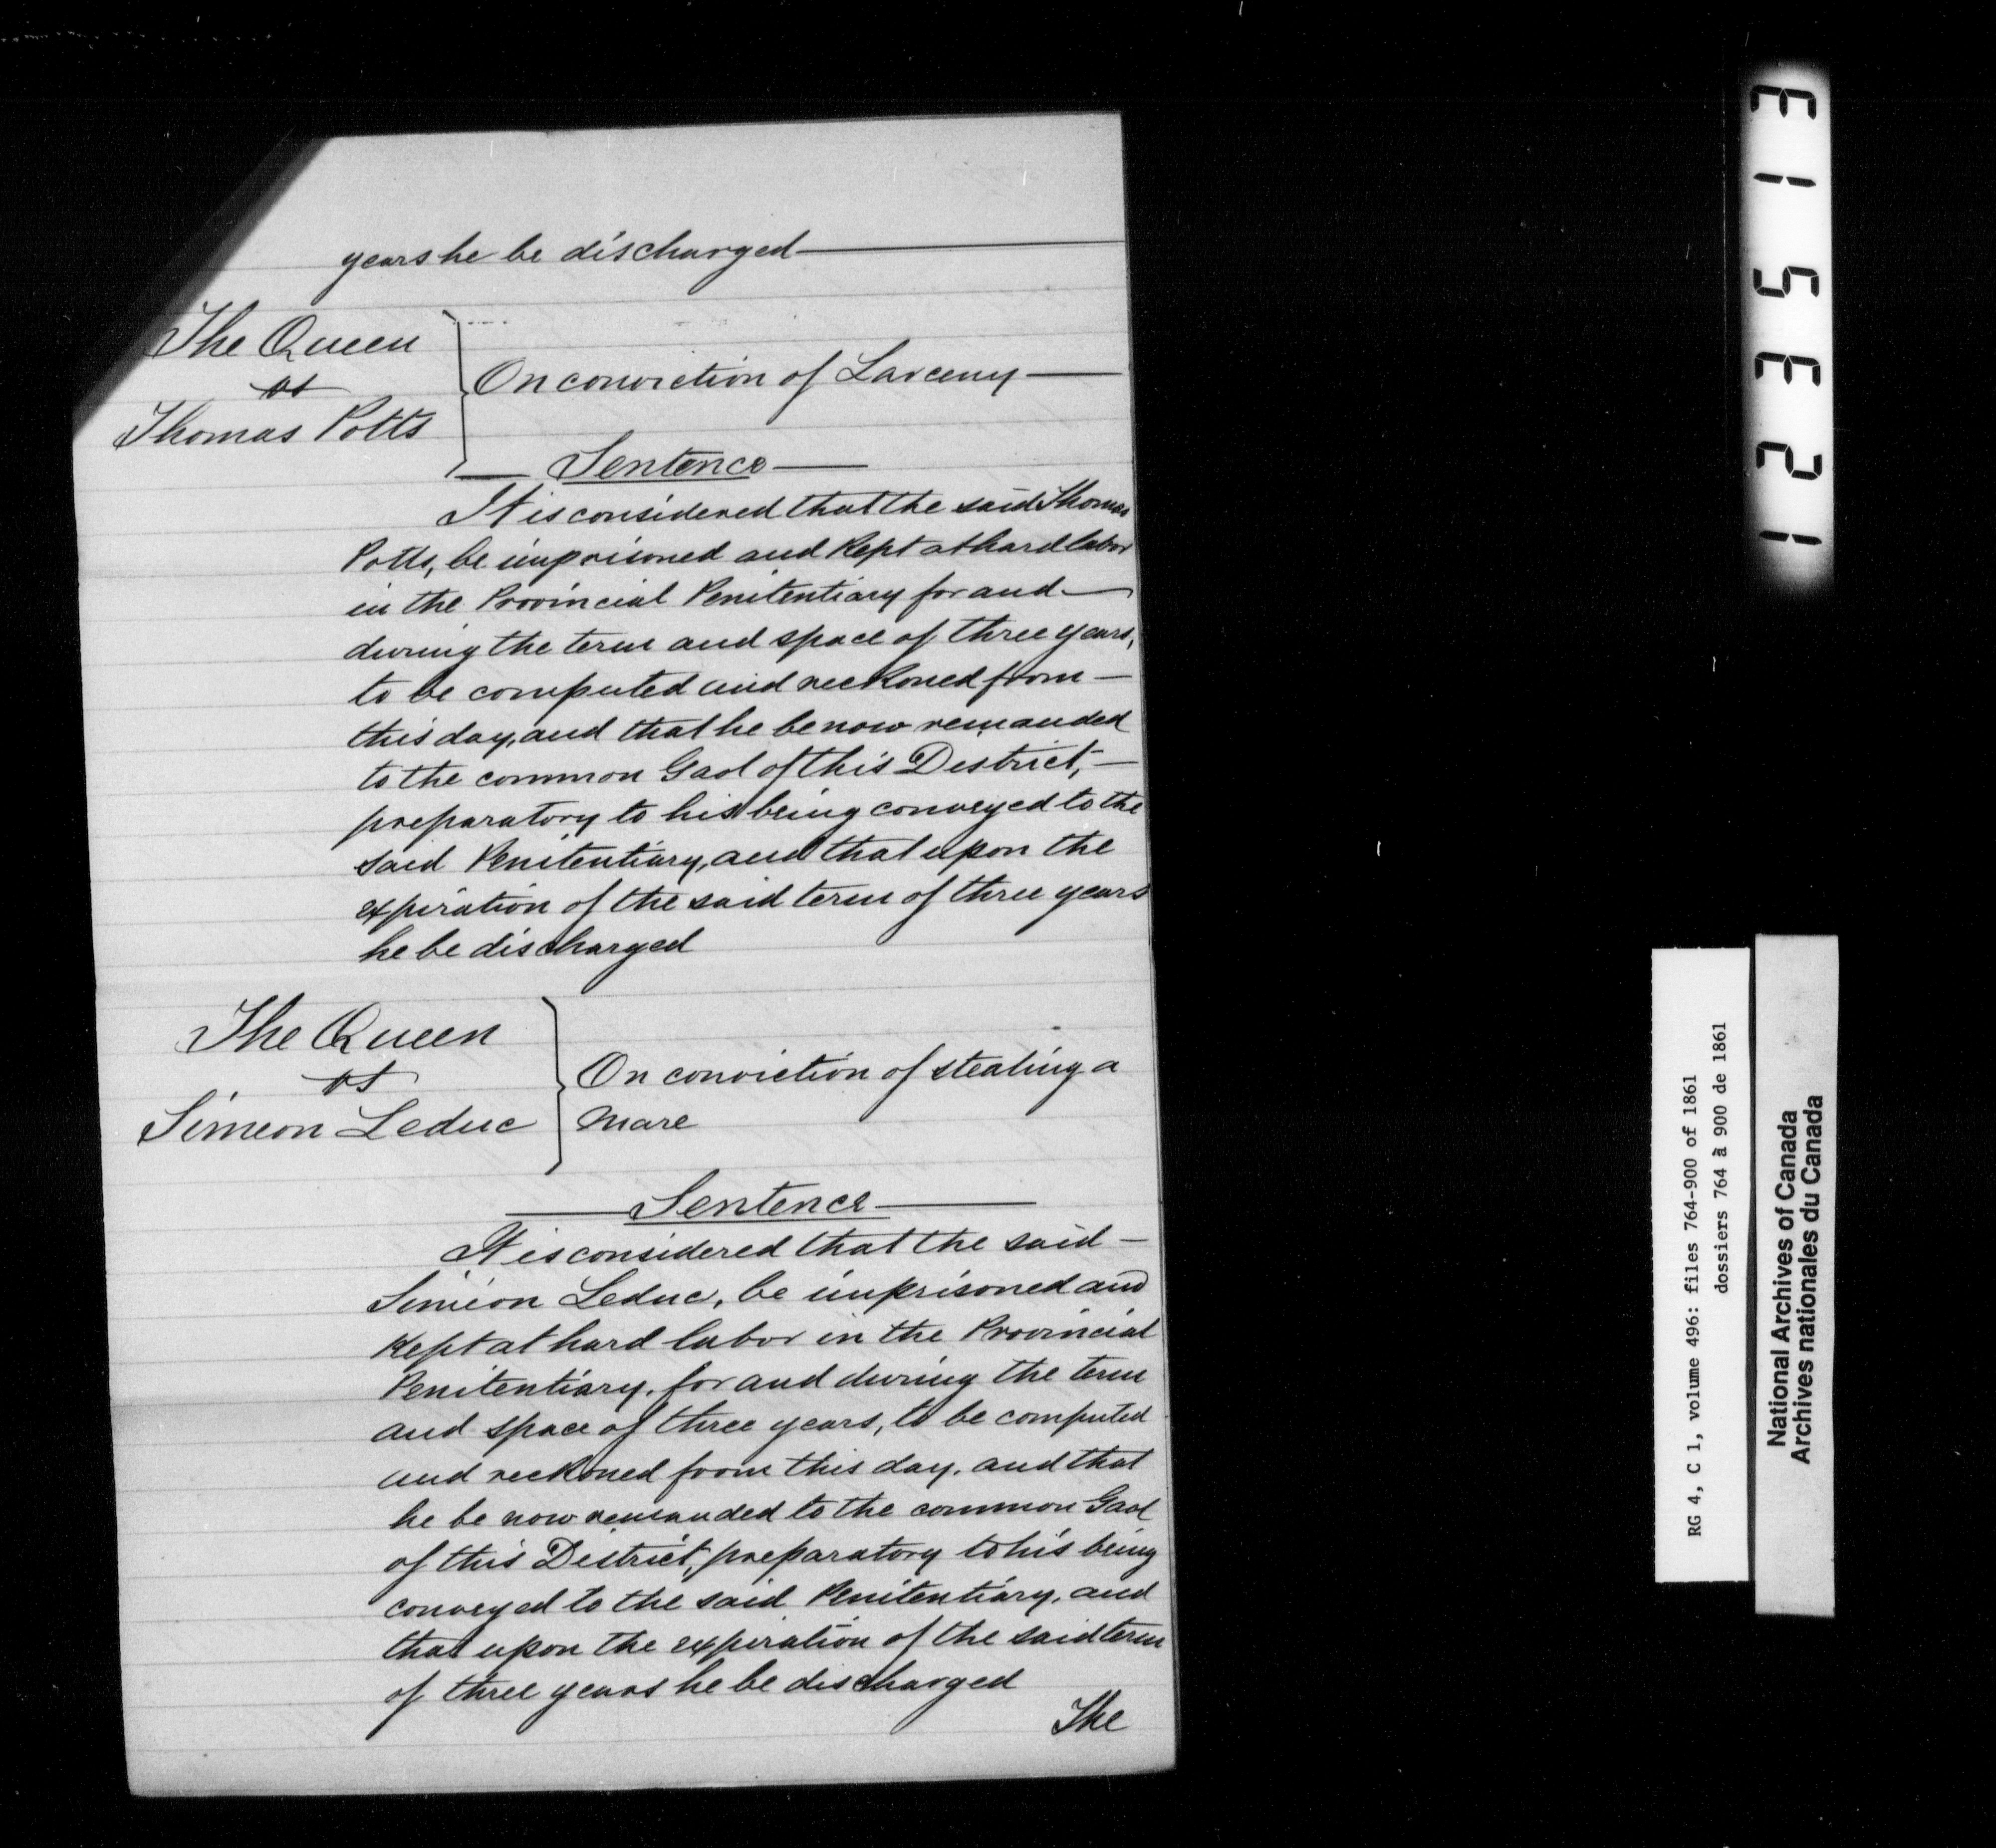 years he be discharged
The Queen
vs
Thomas Potts
On conviction of Larceny
Sentence
It is considered that the said Thomas
Potts, be imprisoned and Kept at hard labor
in the Provincial Penitentiary for and
during the term and space of three years,
to be computed and reckoned from
this day, and that he be now remanded
to the common Gaol of this District,
preparatory to his being conveyed to the
said Penitentiary, and that upon the
expiration of the said term of three years
he be discharged
The Queen
vs
Simeon Leduc
On conviction of stealing a
mare
Sentence
It is considered that the said
Simeon Leduc, be imprisoned and
Kept at hard labor in the Provincial
Penitentiary, for and during the term
and space of three years, to be computed
and reckoned from this day, and that
he be now remanded to the common Gaol
of this District, preparatory to his being
conveyed to the said Penitentiary, and
that upon the expiration of the said term
of three years he be discharged
The
123513
RG 4, C 1, volume 496: files 764-900 of 1861
dossiers 764 à 900 de 1861
National Archives of Canada
Archives nationales du Canada